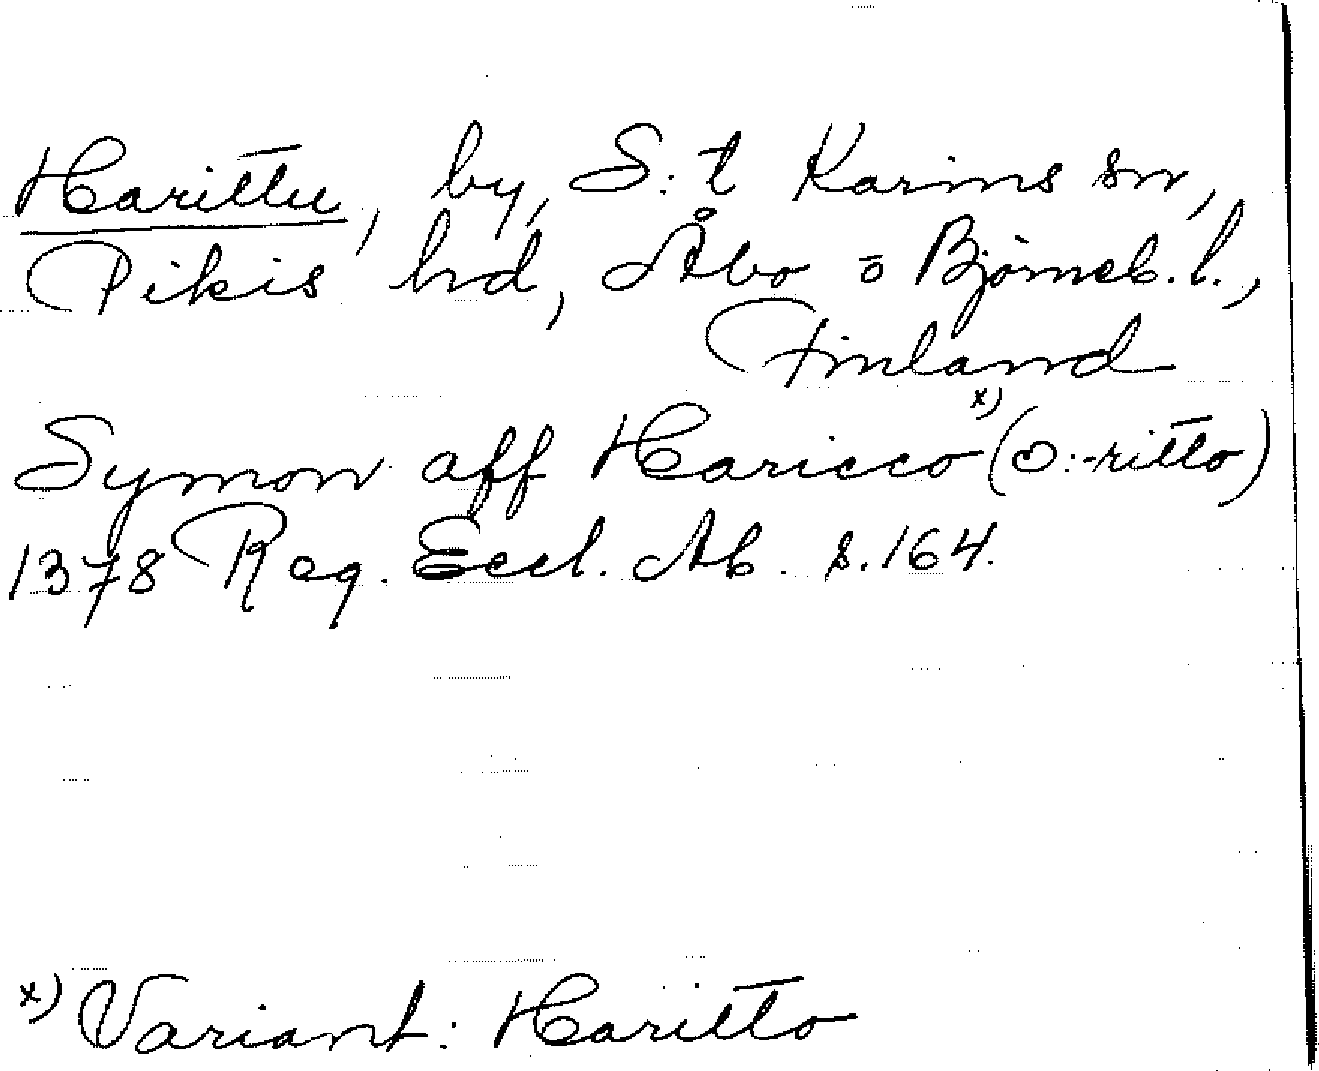 Harittu, by, S:t Karins sn,
Pikis hd, Åbo o Björneb. l.,
Finland
Symon aff Haricco x) (ɔ:-ritto)
1378 Reg. Eccl. Ab. s. 164.
x) Variant: Haritto